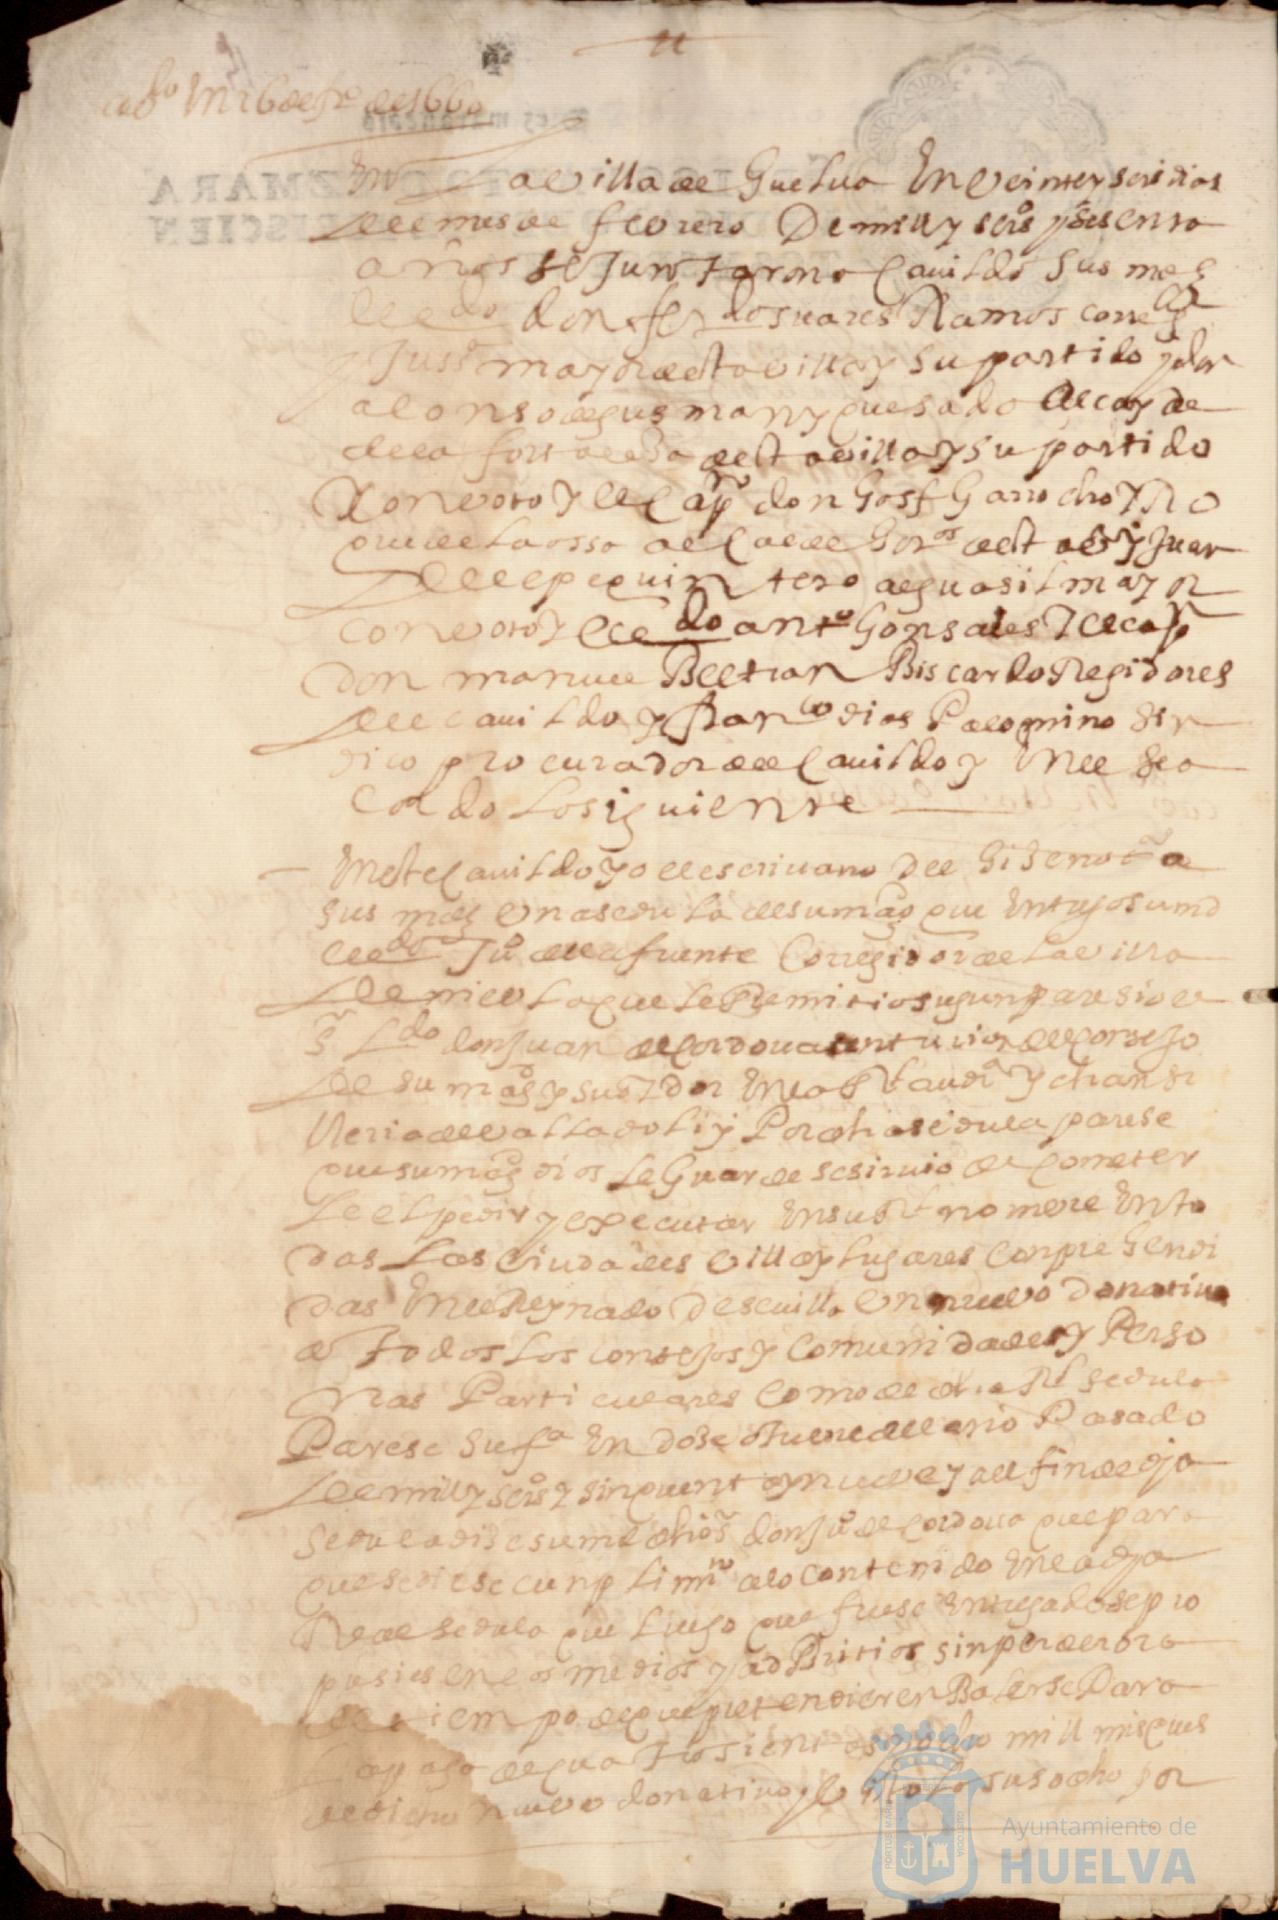 11
cabdo En 26 de fro de 1660
En la villa de Guelva En veinte y seis dias
del mes de febrero De mill y seisos y sesenta
años se Juntaron a Cavildo sus mes
el ldo don ferdo suares Ramos corregor
y Justa mayor de esta villa y su partido y don
alonso de gusman y quesada Alcayde
de la fortalesa de esta villa y su partido
Con voto y el Capn don Josf Garrocho y Ro
de la ossa Alcalde hordos de esta va y Juan
del lepe quintero alguasil mayor
con voto y el ldo anto Gonsales y el capn
don manuel Beltran Biscardo Regidores
del cavildo y franco dias Palomino sin
dico procurador del Cavildo y En el se a
cordo lo siguiente
En este Cavildo yo el escrivano del hise notoa
sus mds Una sedula de su magd que Entrego su md
el ldo Juo de la fuente Corregidor de la villa
de niebla que le Remitio segun paresio el
Sr Ldo don Juan de Cordova senturion del Consejo
de su magd y su oydor En la Rl audia y chansi
lleria de valladoliz Por dha sedula parese
que su magd dios le Guarde se sirvio de Cometer
le el pedir y executar En su Rl nombre En to
das Las Ciudades villas y lugares Conprehendi
das En el Reynado De sevilla Un nuevo Donativo
a todos los consejos y comunidades y Perso
nas Particulares Como de dha Rl sedula
Parese su fa En dose de otubre del año Pasado
de mill y seisos y sinquenta y nueve y al fin de dja
sedula dise su md dho sr don Juo de Cordova que para
que se diese cunplimto a lo contenido En la dja
Real sedula que luego que fuese Entregada se pro
pusiesen los medios y adbitrios sin perder ora
de tiempo de que pretendieren Balerse Para
La paga de quatrosientos y ocho mill mrs que es
de dicho nuevo donativo y visto lo susodho por
Ayuntamiento de
HUELVA
PORTUS MARIS
CUSTODIA